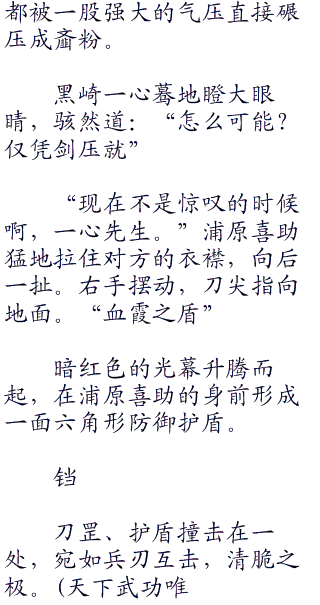 都被一股强大的气压直接碾
压成齑粉。
黑崎一心蓦地瞪大眼
睛，骇然道：“怎么可能？
仅凭剑压就”
“现在不是惊叹的时候
啊，一心先生。”浦原喜助
猛地拉住对方的衣襟，向后
一扯。右手摆动，刀尖指向
地面。“血霞之盾”
暗红色的光幕升腾而
起，在浦原喜助的身前形成
一面六角形防御护盾。
铛
刀罡、护盾撞击在一
处，宛如兵刃互击，清脆之
极。(天下武功唯